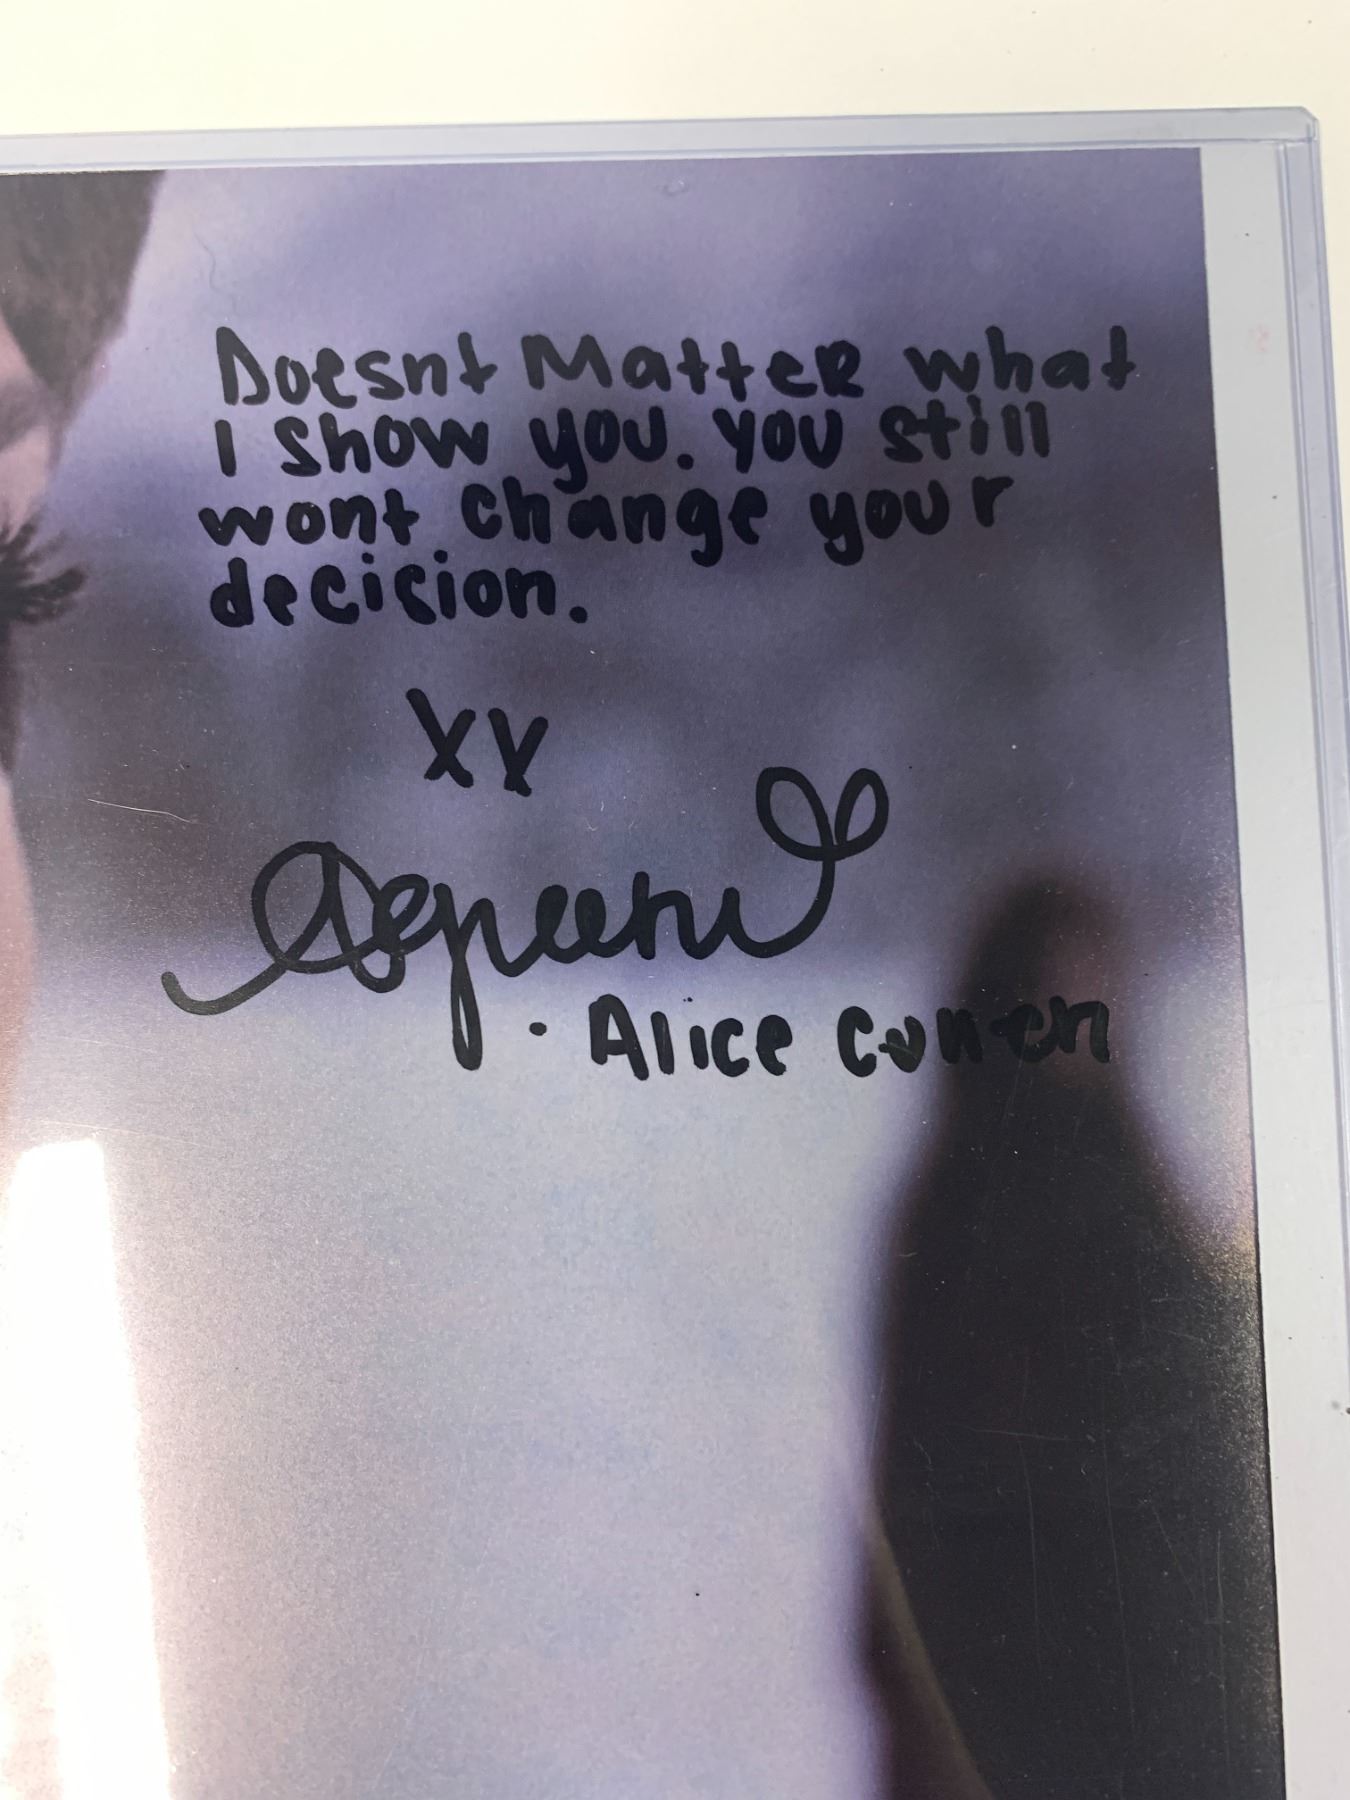 Doesnt Matter what
I show you. You still
wont change your
decision.
XX
Alice Cullen